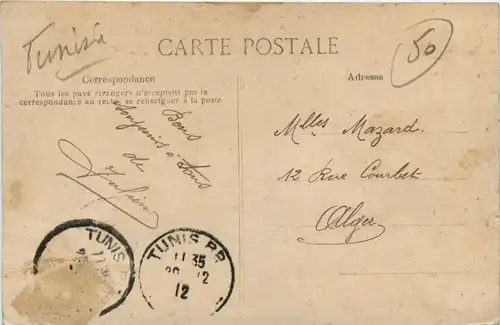 Tunisia
50
CARTE POSTALE
Correspondance
Tous les pays étrangers n'acceptent pas la
correspondance au recto, se renseigner à la poste
Adresse
Bons
Souvenirs à tous
de
Mlles Mazard.
12 Rue Courbet
Alger
TUNIS
TUNIS RP
11 35
12
12